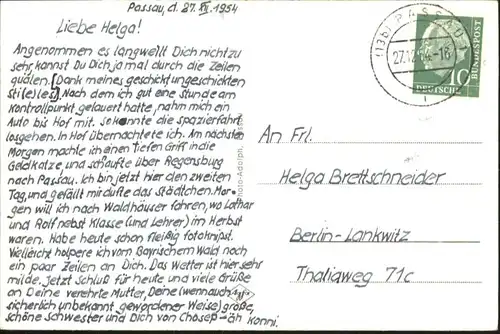 Passau, d. 27. XII. 1954
Liebe Helga!
Angenommen es langweilt Dich nicht zu
sehr, kannst Du Dich ja mal durch die Zeilen
quälen. (Dank meines geschickt ungeschickten
Sti(e)les). Nach dem ich gut eine Stunde am
Kontrollpunkt gelauert hatte, nahm mich ein
Auto bis Hof mit. So konnte die Spazierfahrt
losgehen. In Hof übernachtete ich. Am nächsten
Morgen machte ich einen tiefen Griff in die
Geldkatze und schaufte über Regensburg
nach Passau. Ich bin jetzt hier den zweiten
Tag, und gefällt mir dufte das Städtchen. Mor-
gen will ich nach Waldhäuser fahren, wo Lothar
und Rolf nebst Klasse (und Lehrer) im Herbst
waren. Habe heute schon fleißig fotoknipst.
Vielleicht holpere ich vom Bayrischem Wald noch
ein paar Zeilen an Dich. Das Wetter ist hier sehr
milde. Jetzt Schluß für heute und viele Grüße
an Deine verehrte Mutter, Deine (wenn auch
sicherlich unbekannt gewordener Weise) große,
schöne Schwester und Dich von Chosep-äh Konni.
(13b) PASSAU
27.12.54-18
DEUTSCHE
BUNDESPOST
10
An Frl.
Helga Brettschneider
Berlin-Lankwitz
Thaliaweg 71c